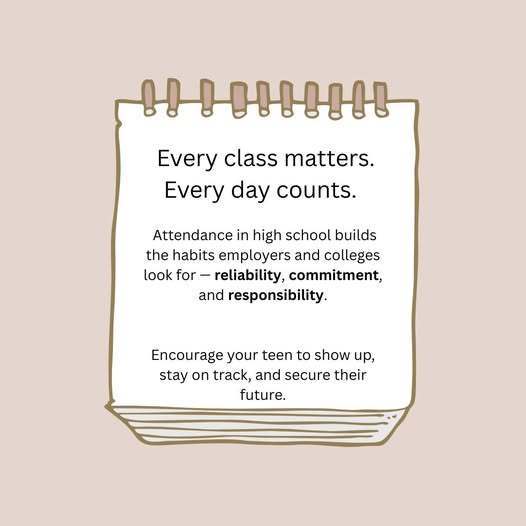 Every class matters.
Every day counts.
Attendance in high school builds
the habits employers and colleges
look for — reliability, commitment,
and responsibility.
Encourage your teen to show up,
stay on track, and secure their
future.